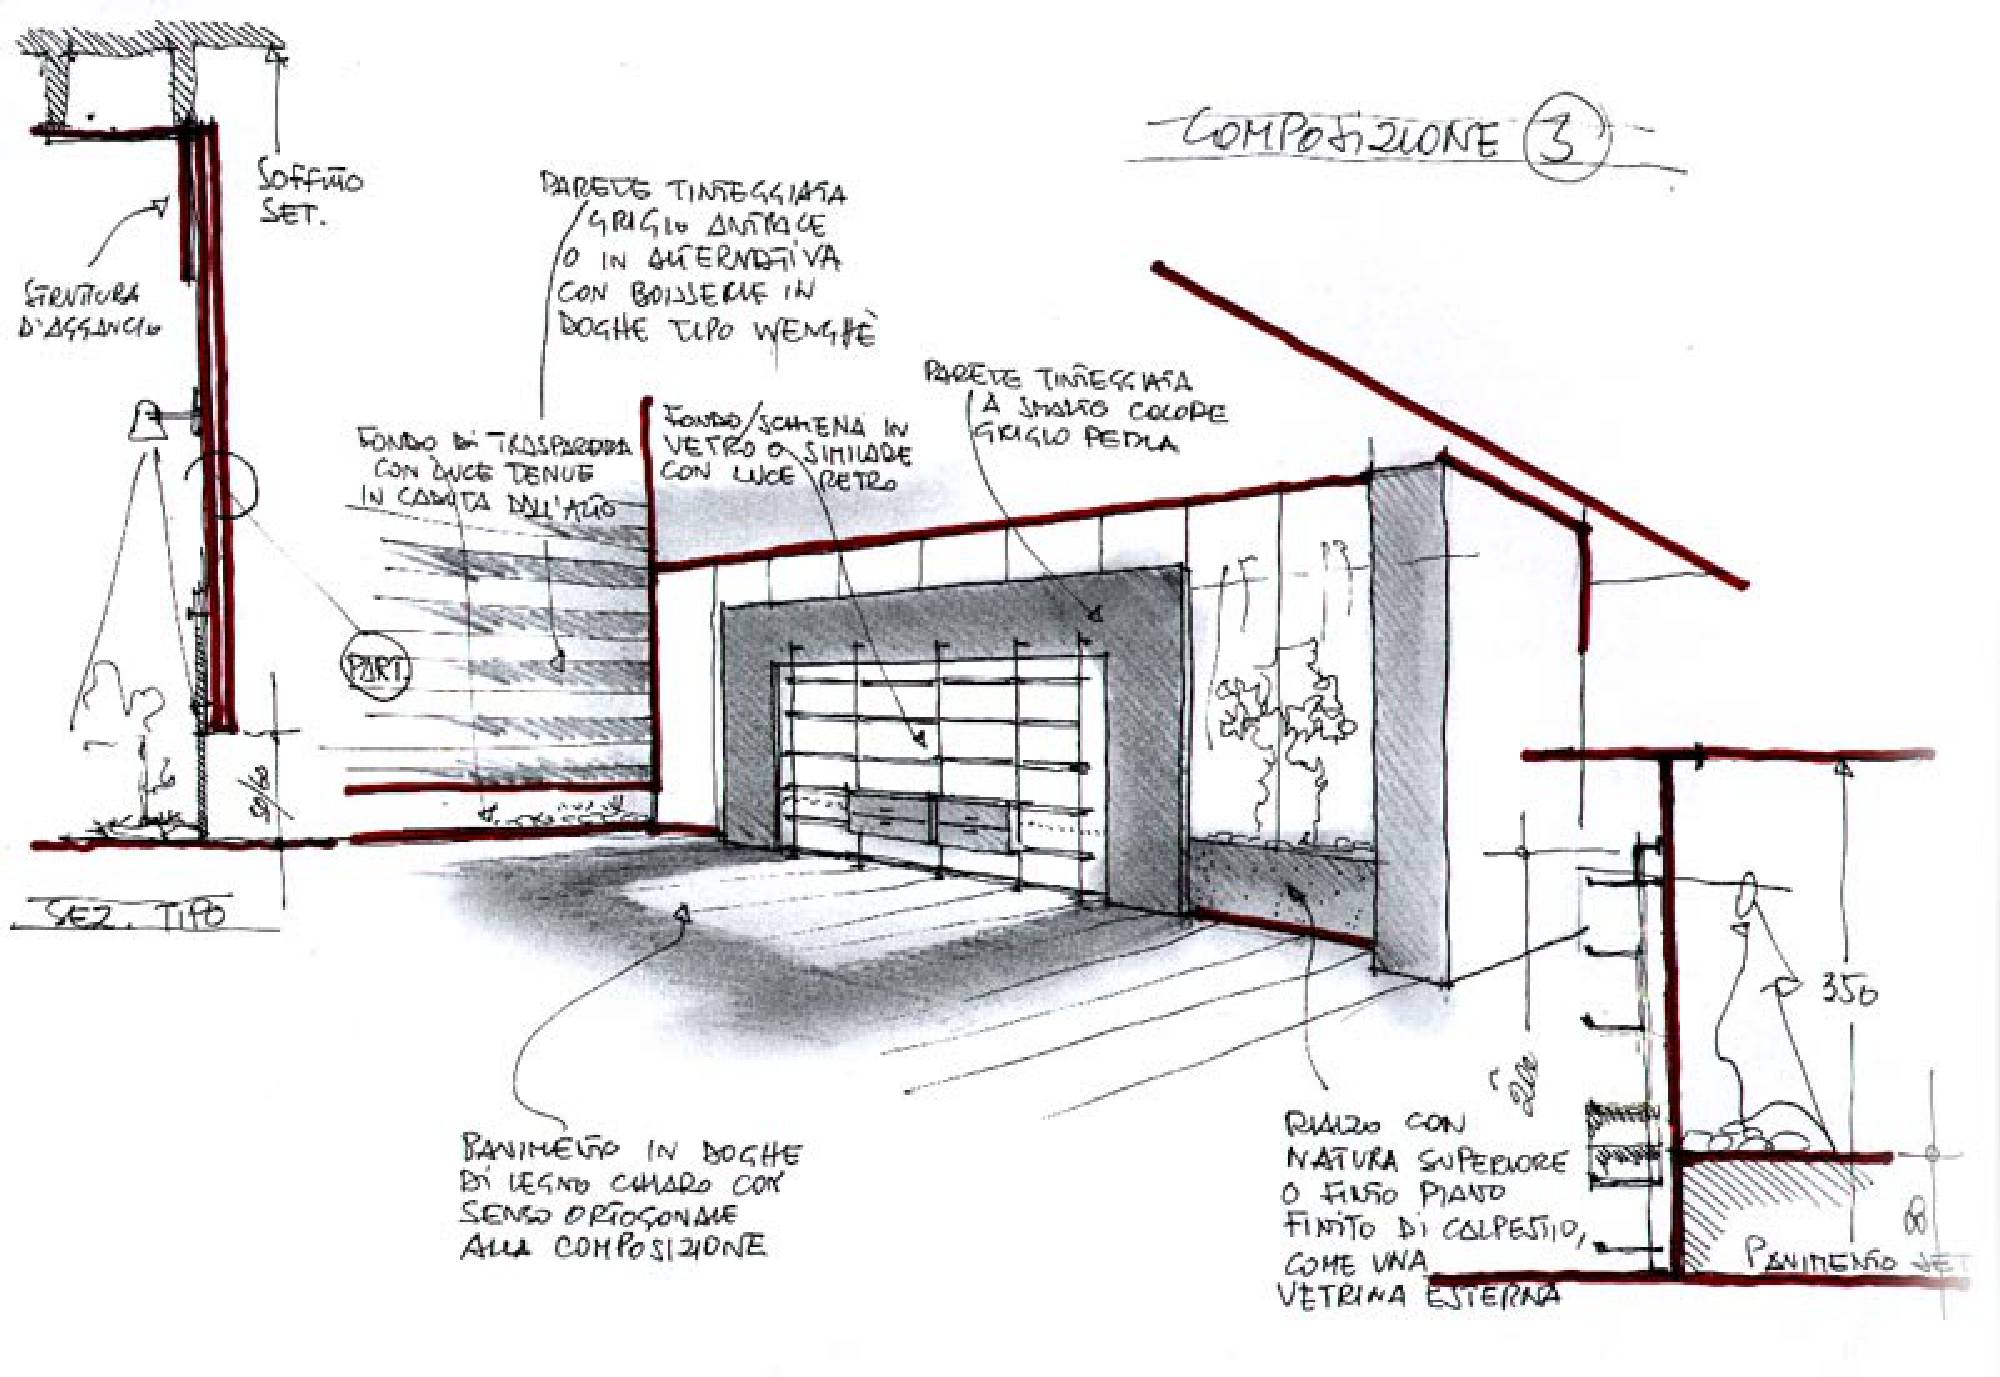 COMPOSIZIONE 3
SOFFITTO
SET.
STRUTTURA
D'AGGANCIO
PARETE TINTEGGIATA
GRIGIO ANTRACE
O IN ALTERNATIVA
CON BOISSERIE IN
DOGHE TIPO WENGHÈ
PARETE TINTEGGIATA
A SMALTO COLORE
GRIGIO PERLA
FONDO/SCHIENA IN
VETRO O SIMILARE
CON LUCE RETRO
FONDO DI
CON LUCE TENUE
IN CADUTA DALL'ALTO
PART.
SEZ. TIPO
350
PAVIMENTO IN DOGHE
DI LEGNO CHIARO CON
SENSO ORTOGONALE
ALLA COMPOSIZIONE
RIALZO CON
NATURA SUPERIORE
O FINTO PIANO
FINITO DI CALPESTIO,
COME UNA
VETRINA ESTERNA
PAVIMENTO SET